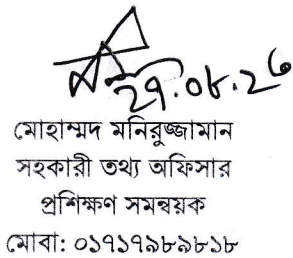 ২৭.০৮.২৬
মোহাম্মদ মনিরুজ্জামান
সহকারী তথ্য অফিসার
প্রশিক্ষণ সমন্বয়ক
মোবা: ০১৭১৭৯৮৯৮১৮